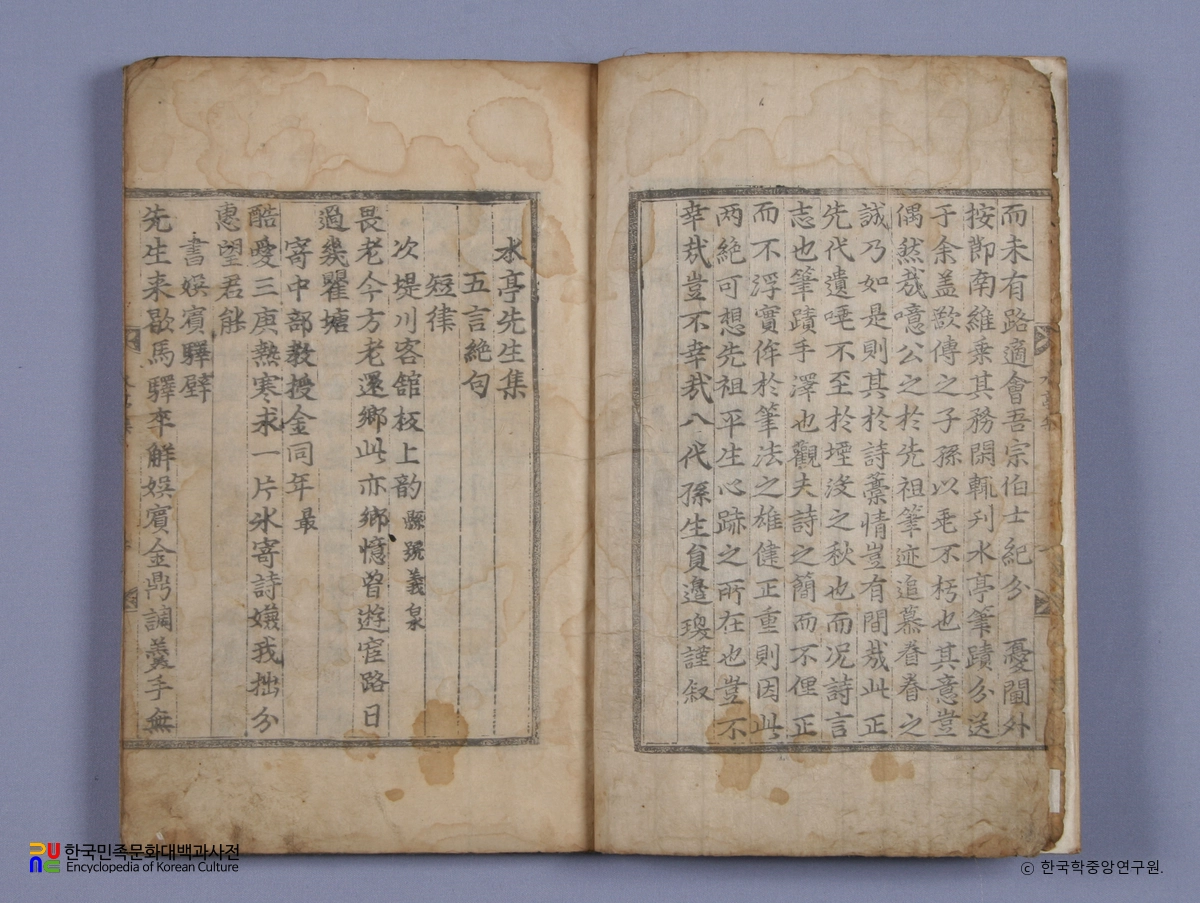 而未有路適會吾宗伯士紀分 憂閫外
按節南維乗其務閑輒刋水亭筆蹟分送
于余盖欲傳之子孫以圖不朽也其意豈
偶然㢤噫公之於先祖筆迹追慕眷眷之
誠乃如是則其於詩藁情豈有間㢤此正
先代遺唾不至於堙沒之秋也而况詩言
志也筆蹟手澤也觀夫詩之簡而不俚正
而不浮實侔於筆法之雄健正重則因此
两絶可想先祖平生心跡之所在也豈不
幸㢤豈不幸㢤八代孫生負邉瓊謹叙
水亭先生集
五言絶句
短律
次堤川客舘板上韵 縣號義泉
畏老今方老還郷此亦郷憶曽遊宦路日
過幾瞿塘
寄中部教授金同年 最
酷愛三庚熱寒求一片氷寄詩嫌我拙分
惠望君能
書娯賔驛壁
先生来歇馬驛卒解娯賔金鼎調羹手無
한국민족문화대백과사전
Encyclopedia of Korean Culture
ⓒ 한국학중앙연구원.